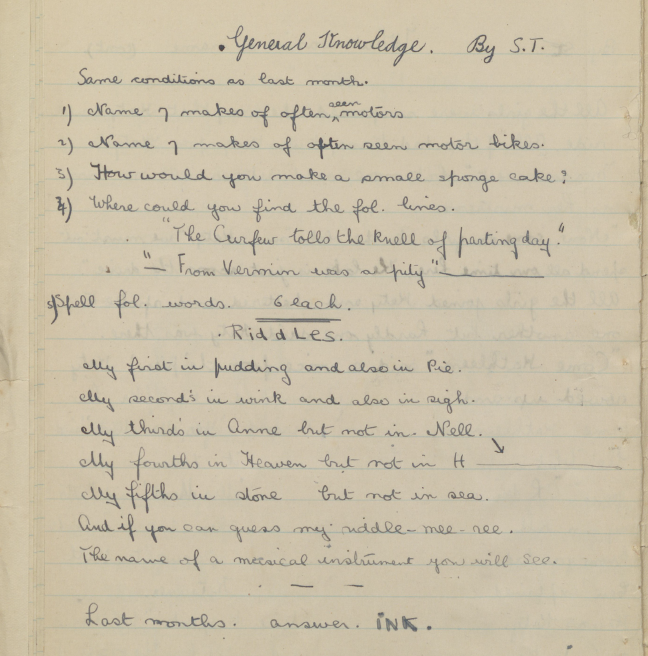 General Knowledge. By S.T.
Same conditions as last month.
1) Name 7 makes of often seen motors
2) Name 7 makes of often seen motor bikes.
3) How would you make a small sponge cake?
4) Where could you find the fol. lines.
"The Curfew tolls the knell of parting day."
"— From Vermin was a pity"
5) Spell fol. words. 6 each.
Riddles.
My first in pudding and also in Pie.
My second's in wink and also in sigh.
My third's in Anne but not in Nell.
My fourths in Heaven but not in H
My fifths in stone but not in sea.
And if you can guess my riddle-mee-ree.
The name of a mecsical instrument you will see.
Last months. answer. INK.